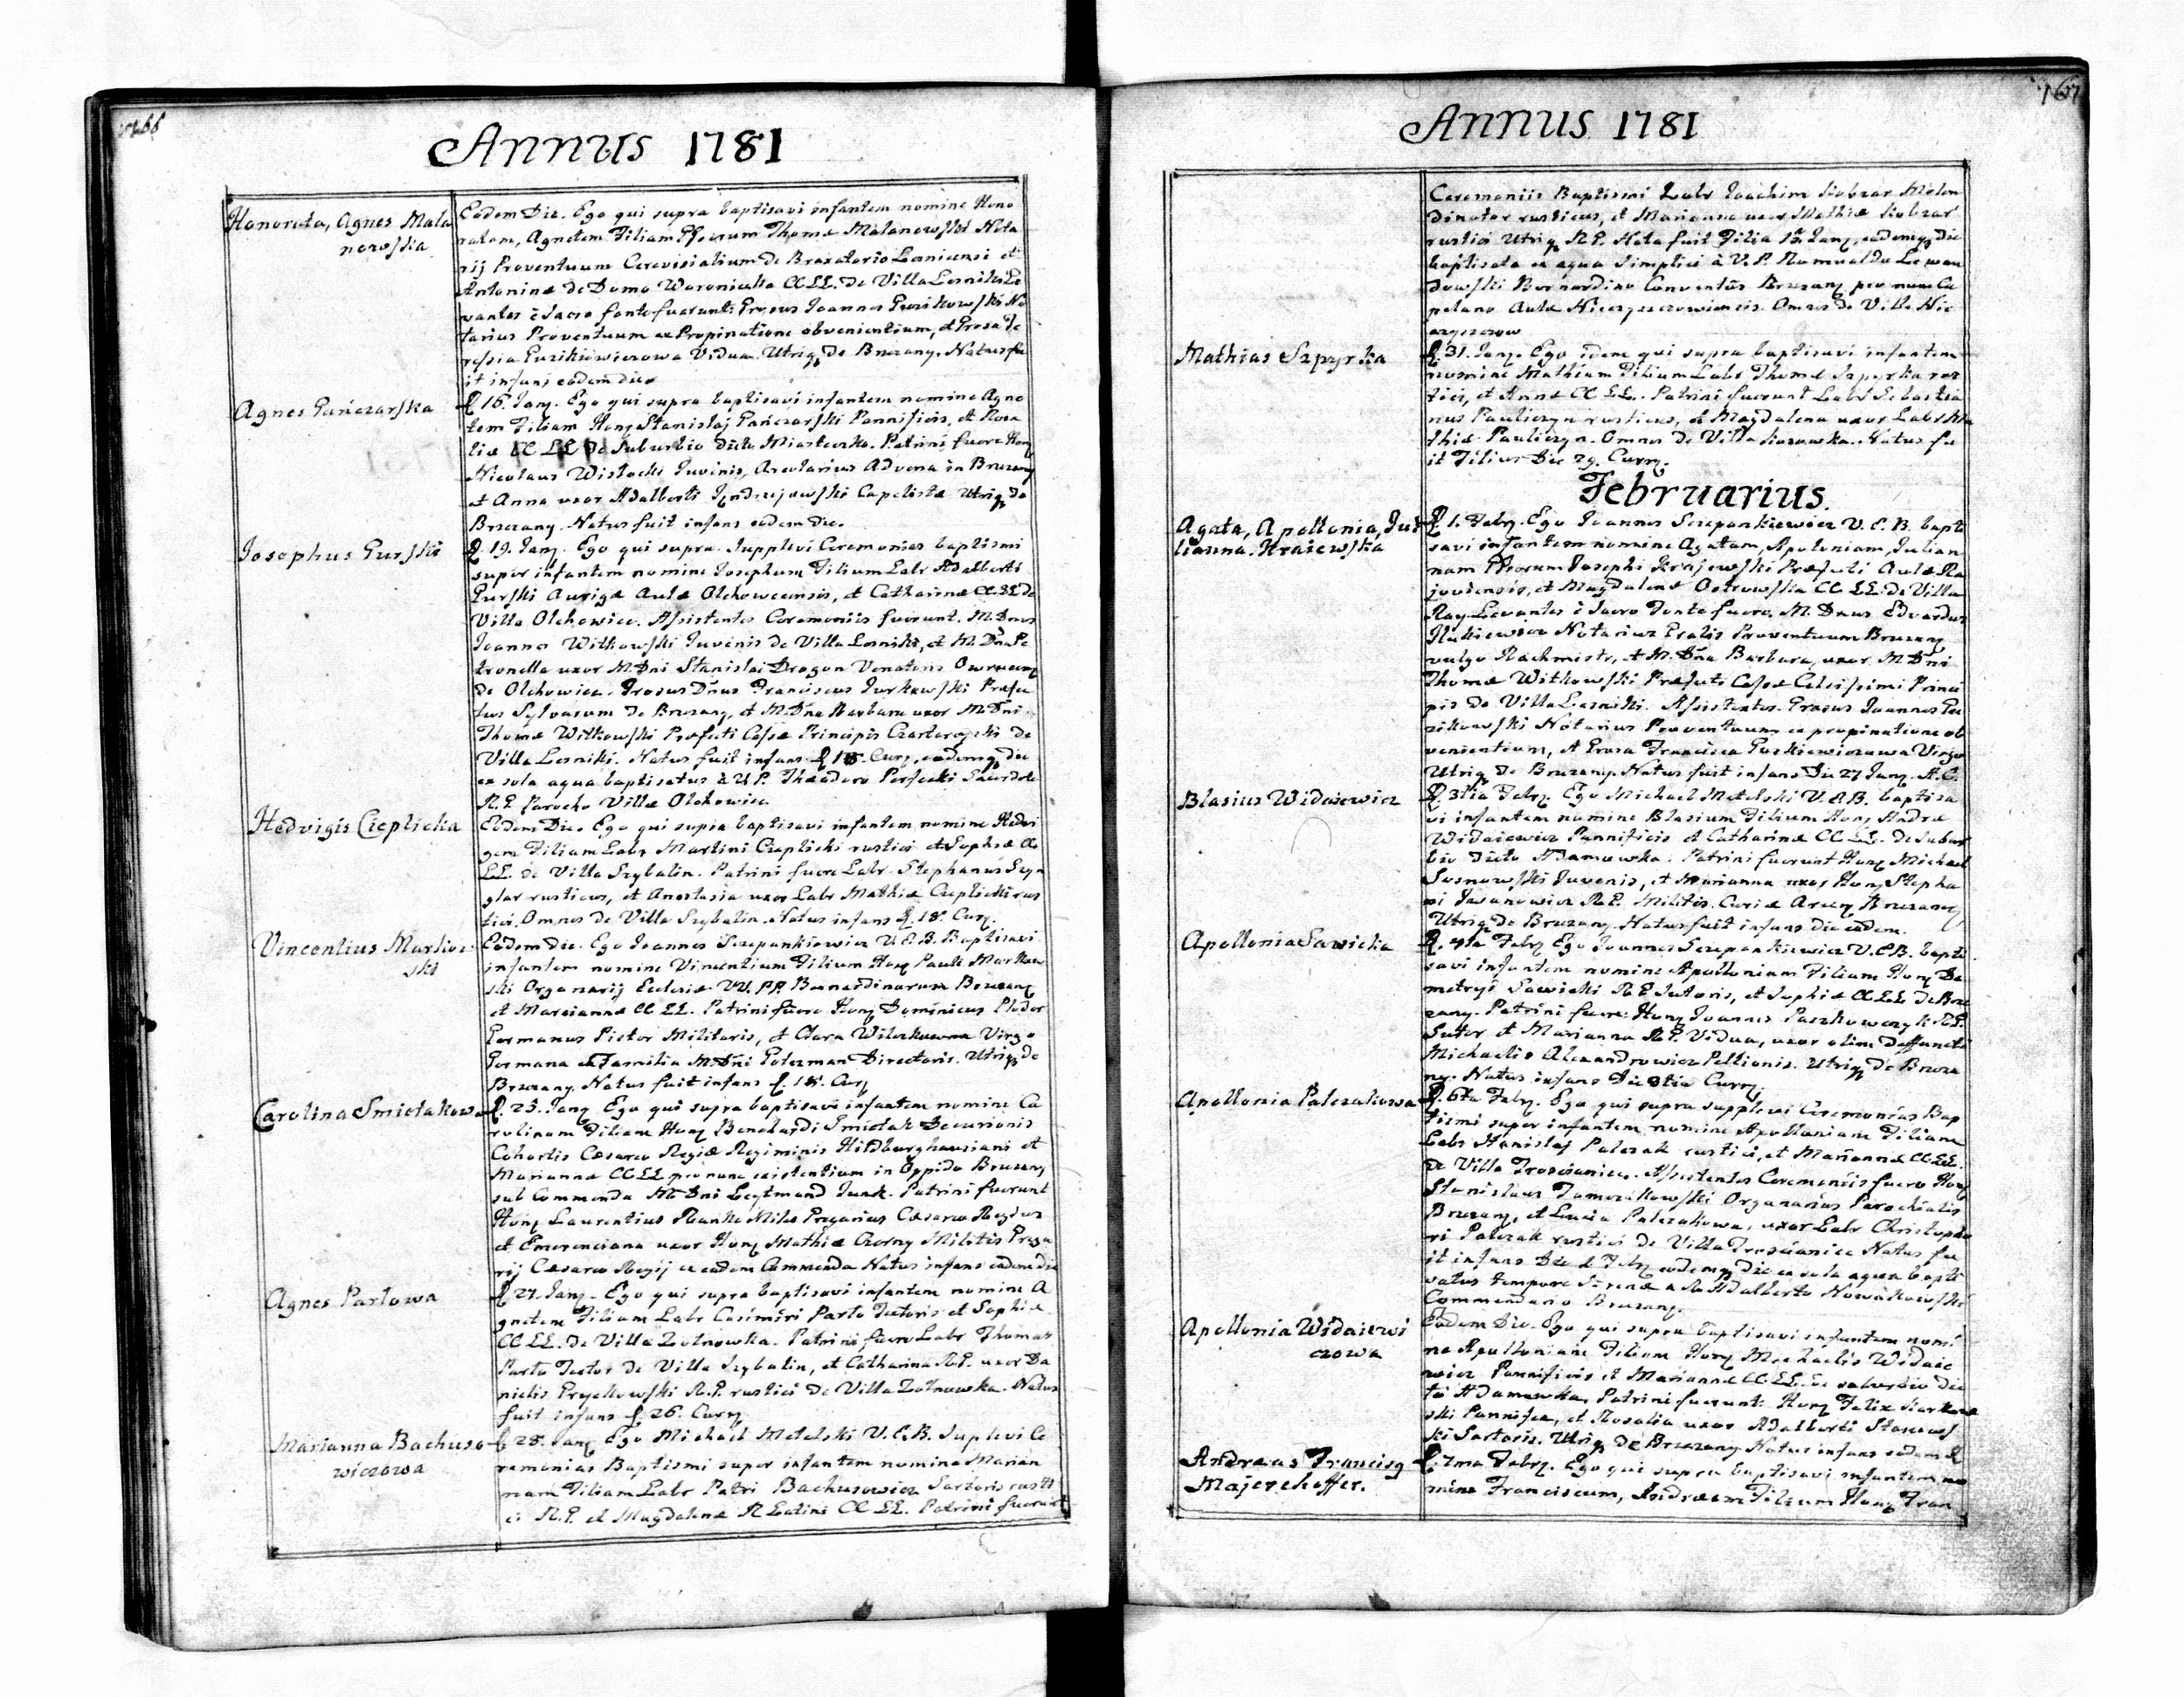 166
Annus 1781
Honorata, Agnes Mala
nowska
Eodem Die. Ego qui supra baptisavi infantem nomine Hono
ratam, Agnetem Filiam Thomæ Malanowski Nota
rij Proventuum Cerevisialium de Braxatorio Lesnicensi et
Antoninæ de Domo Woronicka CC.LL. de Villa Lesniki Le
vantes è Sacro fonte fuerunt: Joannes Guzikowski No
tarius Proventuum ex Propinatione obvenientium, et
ressia Guzikiewiczowa Vidua. Utriq de Brzezany. Natus fu
it infans eodem die
Agnes Gańczarska
D. 16. Jany. Ego qui supra baptisavi infantem nomine Agne
tem Filiam Hony Stanislaj Gańczarski Pannificis, et Rosa
liæ CC LL de Suburbio dicto Miasteczko. Patrini fuere Hony
Nicolaus Wisłocki Juvinis, Arcularius Advena in Brzezany
et Anna uxor Adalberti Jendrzejowski Capelistæ Utriq de
Brzezany. Natus fuit infans eodem die.
Josephus Gurski
D. 19. Jany. Ego qui supra. Supplevi Ceremonias baptismi
super infantem nomine Josephum Filium Labr Adalberti
Gurski Aurigæ Aulæ Olchowcensis, et Catharinæ CC.LL de
Villa Olchowiec. Assistentes Ceremoniis fuerunt. M. Dnus
Joannes Witkowski Juvenis de Villa Lesniki, et M. Dna Pe
tronella uxor M. Dni Stanislai Dragon Venatoris
de Olchowiec. Grosus Dnus Franciscus Jurkowski Præfe
tus Sylvarum de Brzezany, et M. Dna Barbara uxor M. Dni
Thomæ Witkowski Præfecti Cassæ Principis Czartoryski de
Villa Lesniki. Natus fuit infans D 18. Curr, eodemq die
ex sola aqua baptisatus à V.P. Theodoro Perfecki Sacerdote
R.G. Parocho Villæ Olchowiec
Hedvigis Cieplicka
Eodem Die. Ego qui supra baptisavi infantem nomine Hedvi
gem Filiam Labr Martini Cieplicki rustici et Sophiæ CC
LL. de Villa Szybalin. Patrini fuere Labr. Stephanus Szyn
glar rusticus, et Anastasia uxor Labr Mathiæ Cieplicki rus
tici. Omnes de Villa Szybalin. Natus infans D. 18. Curr.
Vincentius Markow
ski
Eodem die. Ego Joannes Szczepankiewicz V.E.B. Baptisavi
infantem nomine Vincentium Filium Hony Pauli Markow
ski Organarij Ecclesiæ VV. PP. Bernardinorum Brzezany
et Mariannæ CC LL. Patrini fuere Hony Dominicus
Germanus Pictor Militaris, et Clara Virgo
Germana ex Familia M. Dni Goterman Directoris. Utriq de
Brzezany. Natus fuit infans D. 18. Curr
Carolina Smiotakowa
D. 25. Jany. Ego qui supra baptisavi infantem nomine Ca
rolinam Filiam Hony Benchardi Smiotak Decurionis
Cohortis Cæsareo Regiæ Regiminis Hildburghausiani et
Mariannæ CC LL pro nunc existentium in Oppido Brzezany
sub Commenda M. Dni Leytmand Junk. Patrini fuerunt
Hony Laurentius Hanke Miles Gregarius Cæsareo Regius
et Emerenciana uxor Hony Mathiæ Czerny Militis Grega
rij Cæsareo Regij ex eadem Commenda Natus infans eodem die
Agnes Partowa
D 27. Jany. Ego qui supra baptisavi infantem nomine A
gnetem Filiam Labr Casimiri Parto Textoris et Sophiæ
CC LL. de Villa Zołnowka. Patrini fuere Labr Thomas
Parto Textor de Villa Szybalin, et Catharina R.G. uxor Da
nielis Pryczkowski R.G. rustici de Villa Zołnowka. Natus
fuit infans D. 26. Curr
Marianna Bachuso
wiczowa
D 28. Jany. Ego Michael Metelski V.E.B. Suplevi Ce
remonias Baptismi super infantem nomine Marian
nam Filiam Labr Petri Bachusowicz Sartoris rusti
ci R.G. et Magdalenæ R Latini CC LL. Patrini fuerunt
167
Annus 1781
Ceremoniis Baptismi Labr Joachim Kobzar Molen
dinator rusticus, et Marianna uxor Mathiæ Kobzar
rustici Utriq R.G. Nata fuit Filia 13. Jany, eodemq die
baptisata ex aqua simplici à V.P. Romualdo Lewan
dowski Bernardino Conventûs Brzezany pro nunc Ca
pelano Aulæ Omnes de Villa
Mathias Szpyrka
D. 31. Jany. Ego idem qui supra baptisavi infantem
nomine Mathiam Filium Labr Thomæ Szpyrka rus
tici, et Annæ CC LL. Patrini fuerunt Labr Sebastia
nus Pauliczyn rusticus, et Magdalena uxor Labr Ma
thiæ Pauliczyn. Omnes de Villa Kurowka. Natus fu
it Filius Die 29. Curr.
Februarius.
Agata, Apollonia, Jul
lianna. Kraiewska
D 1. Febry. Ego Joannes Szczepankiewicz V.E.B. bapti
savi infantem nomine Agatam, Apoloniam, Julian
nam Josephi Krajewski Præfecti Aulæ Ra
joviensis, et Magdalenæ Ostrowska CC LL. de Villa
Ray. Levantes è Sacro Fonte fuere. M. Dnus Edvardus
Notarius Proventuum Brzezany
vulgo Rachmistr, et M. Dna Barbara, uxor M. Dni
Thomæ Witkowski Præfecti Cassæ Celsissimi Princi
pis de Villa Lesniki. Assistentes. Grosus Joannes Gu
zikowski Notarius Proventuum ex propinatione ob
venientium, et Grosa Francisca Guzkiewiczowa Virgo
Utriq de Brzezany. Natus fuit infans Die 27 Jany. A.C.
Blasius Widaiewicz
D. 3tia Febry. Ego Michael Metelski V.E.B. baptisa
vi infantem nomine Blasium Filium Hony Andreæ
Widaiewicz Pannificis et Catharinæ CC LL. de Subur
bio dicto Adamowka. Patrini fuerunt Hony Michael
Sosnowski Juvenis, et Marianna uxor Hony Stepha
ni Iwanowicz R.G. Militis Curiæ Arcis Brzezany
Utriq de Brzezany. Natus fuit infans die eadem.
Apollonia Sawicka
D. 4ta Febry Ego Joannes Szczepankiewicz V.E.B. bapti
savi infantem nomine Apolloniam Filiam Hony De
metryi Sawicki R G Sutoris, et Sophiæ CC LL de Brze
zany. Patrini fuere: Hony Joannes Paszkowczyk R.G.
Sutor et Marianna R.G. Vidua, uxor olim deffuncti
Michaelis Alexandrowicz Pellionis. Utriq de Brzeza
ny. Natus infans Die 3tia Curr.
Apollonia Palczakowa
D. 6ta Febry. Ego qui supra supplevi Ceremonias Bap
tismi super infantem nomine Apolloniam Filiam
Labr Stanislaj Palczak rustici, et Mariannæ CC LL.
de Villa Troscianiec. Assistentes Ceremoniis fuere Hony
Stanislaus Organarius Parochialis
Brzezany, et Lucia Palczakowa, uxor Labr Christopho
ri Palczak rustici de Villa Troscianiec Natus fu
it infans Die Febry eodemq die ex sola aqua bapti
satus tempore à Adalberto Nowakowski
Commendario Brzezany.
Apollonia Widaiewi
czowa
Eadem Die. Ego qui supra baptisavi infantem nomi
ne Apolloniam Filiam Hony Michaelis Widaie
wicz Pannificis et Mariannæ CC.LL. de suburbio dic
to Adamowka, Patrini fuerunt: Hony Felix
ski Pannifex, et Rosalia uxor Adalberti
ki Sartoris. Utriq de Brzezany Natus infans eadem D
Andreas Francisq
Majerchoffer.
D. 7ma Febry. Ego qui supra baptisavi infantem no
mine Franciscum, Andream Filium Hony Fran